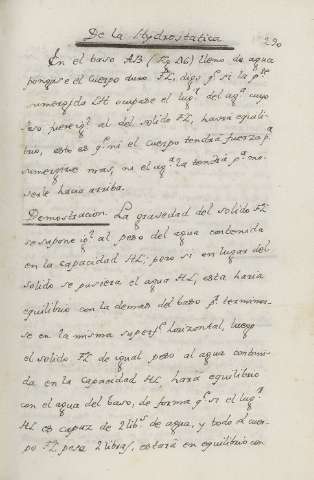 De la Hydrostatica
290
En el baso AB (Fig. 26) lleno de agua
pongase el cuerpo duro FL, digo q.e si la p.te
sumergida LH ocupase el lug.r del ag.a cuyo
peso fuere ig.l al del solido FL, havrá equili-
brio, esto es q.e ni el cuerpo tendrá fuerza p.a
sumergirse mas, ni el ag.a la tendrá p.a mo-
verle hacia arriba.
Demostracion. La gravedad del solido FL
se supone ig.l al peso del agua contenida
en la capacidad HL; pero si en lugar del
solido se pusiera el agua HL, esta haria
equilibrio con la demas del baso p.r terminar-
se en la misma superf.e horizontal, luego
el solido FL de igual peso al agua conteni-
da en la capacidad HL, hará equilibrio
con el agua del baso, de forma q.e si el lug.r
HL es capaz de 2 lib.s de agua, y todo el cuer-
po FL pesa 2 libras, estará en equilibrio con